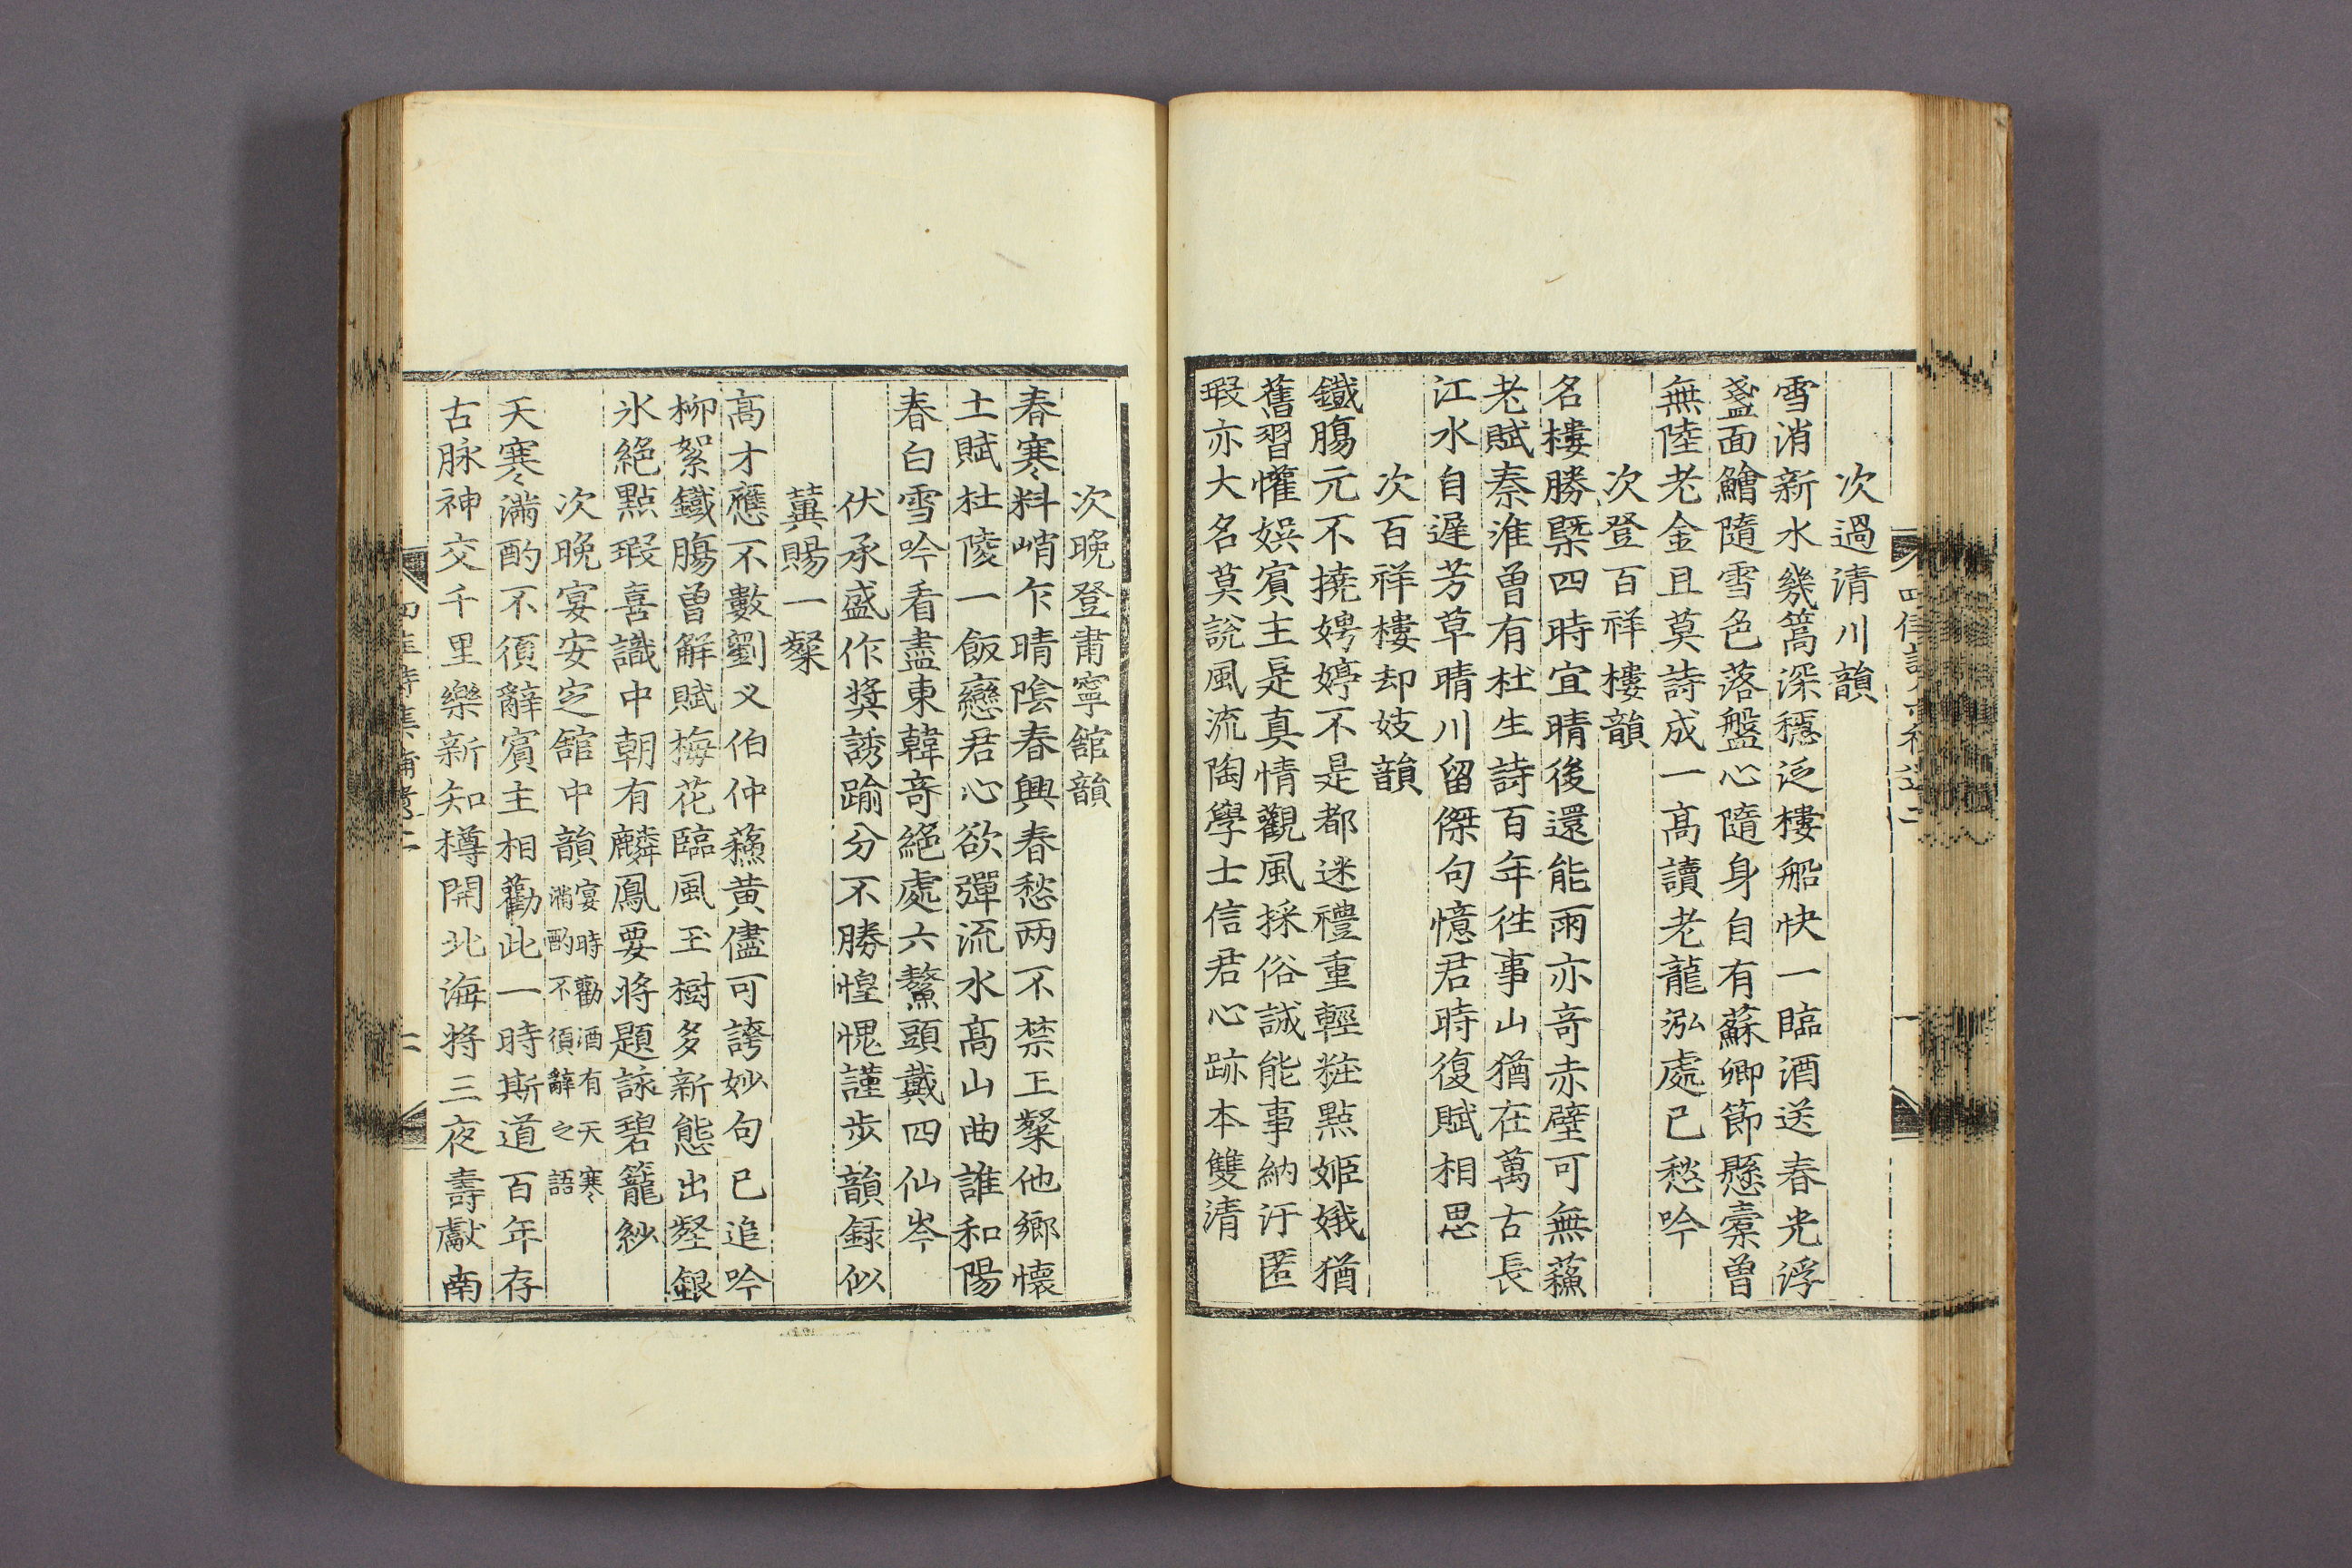 次過清川韻
雪消新水幾篙深穩泛樓船快一臨酒送春光浮
盞面鱠隨雪色落盤心隨身自有蘇卿節懸橐曾
無陸老金且莫詩成一高讀老龍泓處已愁吟
次登百祥樓韻
名樓勝槩四時宜晴後還能雨亦奇赤壁可無蘓
老賦秦淮曾有杜生詩百年徃事山猶在萬古長
江水自遲芳草晴川留傑句憶君時復賦相思
次百祥樓却妓韻
鐵膓元不撓娉婷不是都迷禮重輕粧點姬娥猶
舊習懽娛賓主是真情觀風採俗誠能事納汙匿
瑕亦大名莫說風流陶學士信君心跡本雙清
次晚登肅寧舘韻
春寒料峭乍晴陰春興春愁两不禁王粲他鄉懷
土賦杜陵一飯戀君心欲彈流水高山曲誰和陽
春白雪吟看盡東韓奇絕處六鰲頭戴四仙岑
伏承盛作奬誘踰分不勝惶愧謹步韻録似
兾賜一粲
高才應不數劉乂伯仲蘓黄儘可誇妙句已追吟
柳絮鐵膓曾解賦梅花臨風玉樹多新態出壑銀
氷絕點瑕喜識中朝有麟鳳要將題詠碧籠紗
次晚宴安定舘中韻宴時勸酒有天寒滿酌不須辭之語
天寒滿酌不須辭賓主相勸此一時斯道百年存
古脉神交千里樂新知樽開北海將三夜壽獻南
二